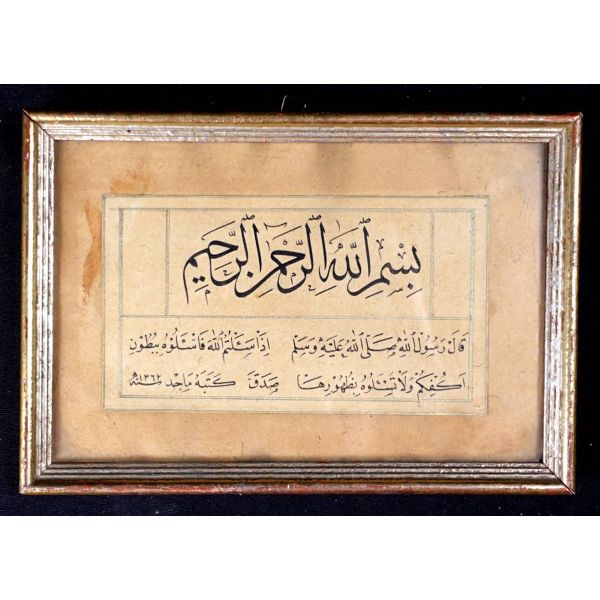 بِسْمِ ٱللَّهِ ٱلرَّحْمٰنِ ٱلرَّحِيمِ
قَالَ رَسُولُ اللّٰهِ صَلَّى اللّٰهُ عَلَيْهِ وَسَلَّم اِذَا سَئَلْتُمُ اللّٰهَ فَاسْئَلُوهُ بِبُطُونِ
اَكُفِّكُمْ وَلَا تَسْئَلُوهُ بِظُهُورِهَا صَدَقَ كَتَبَهُ مَاجِد سنه ١٣٦٢